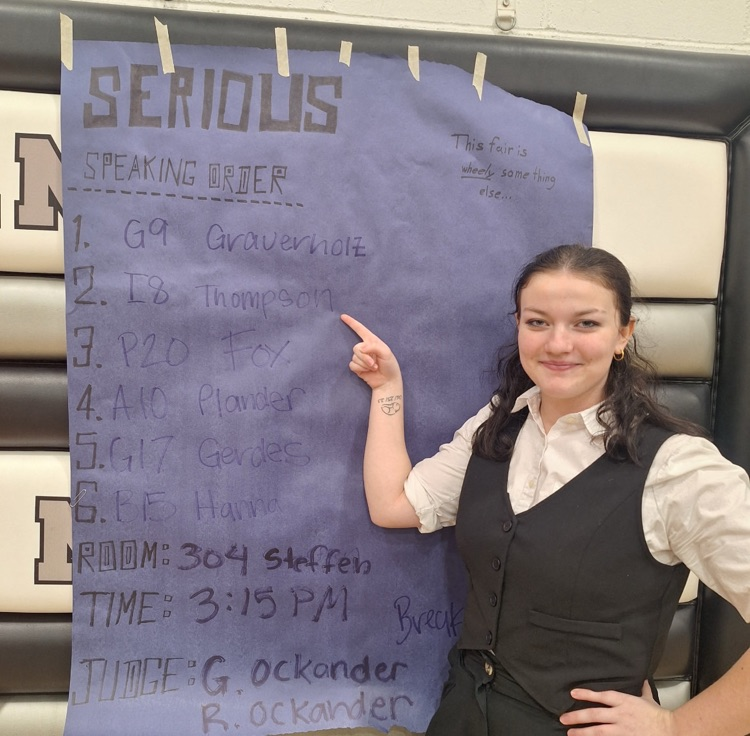 SERIOUS
SPEAKING ORDER
This fair is
wheely something
else...
1. G9 Grauerholz
2. I8 Thompson
3. P20 Fox
4. A10 Plander
5. G17 Gerdes
6. B15 Hanna
ROOM: 304 Steffen
TIME: 3:15 PM
Break
JUDGE: G. Ockander
R. Ockander